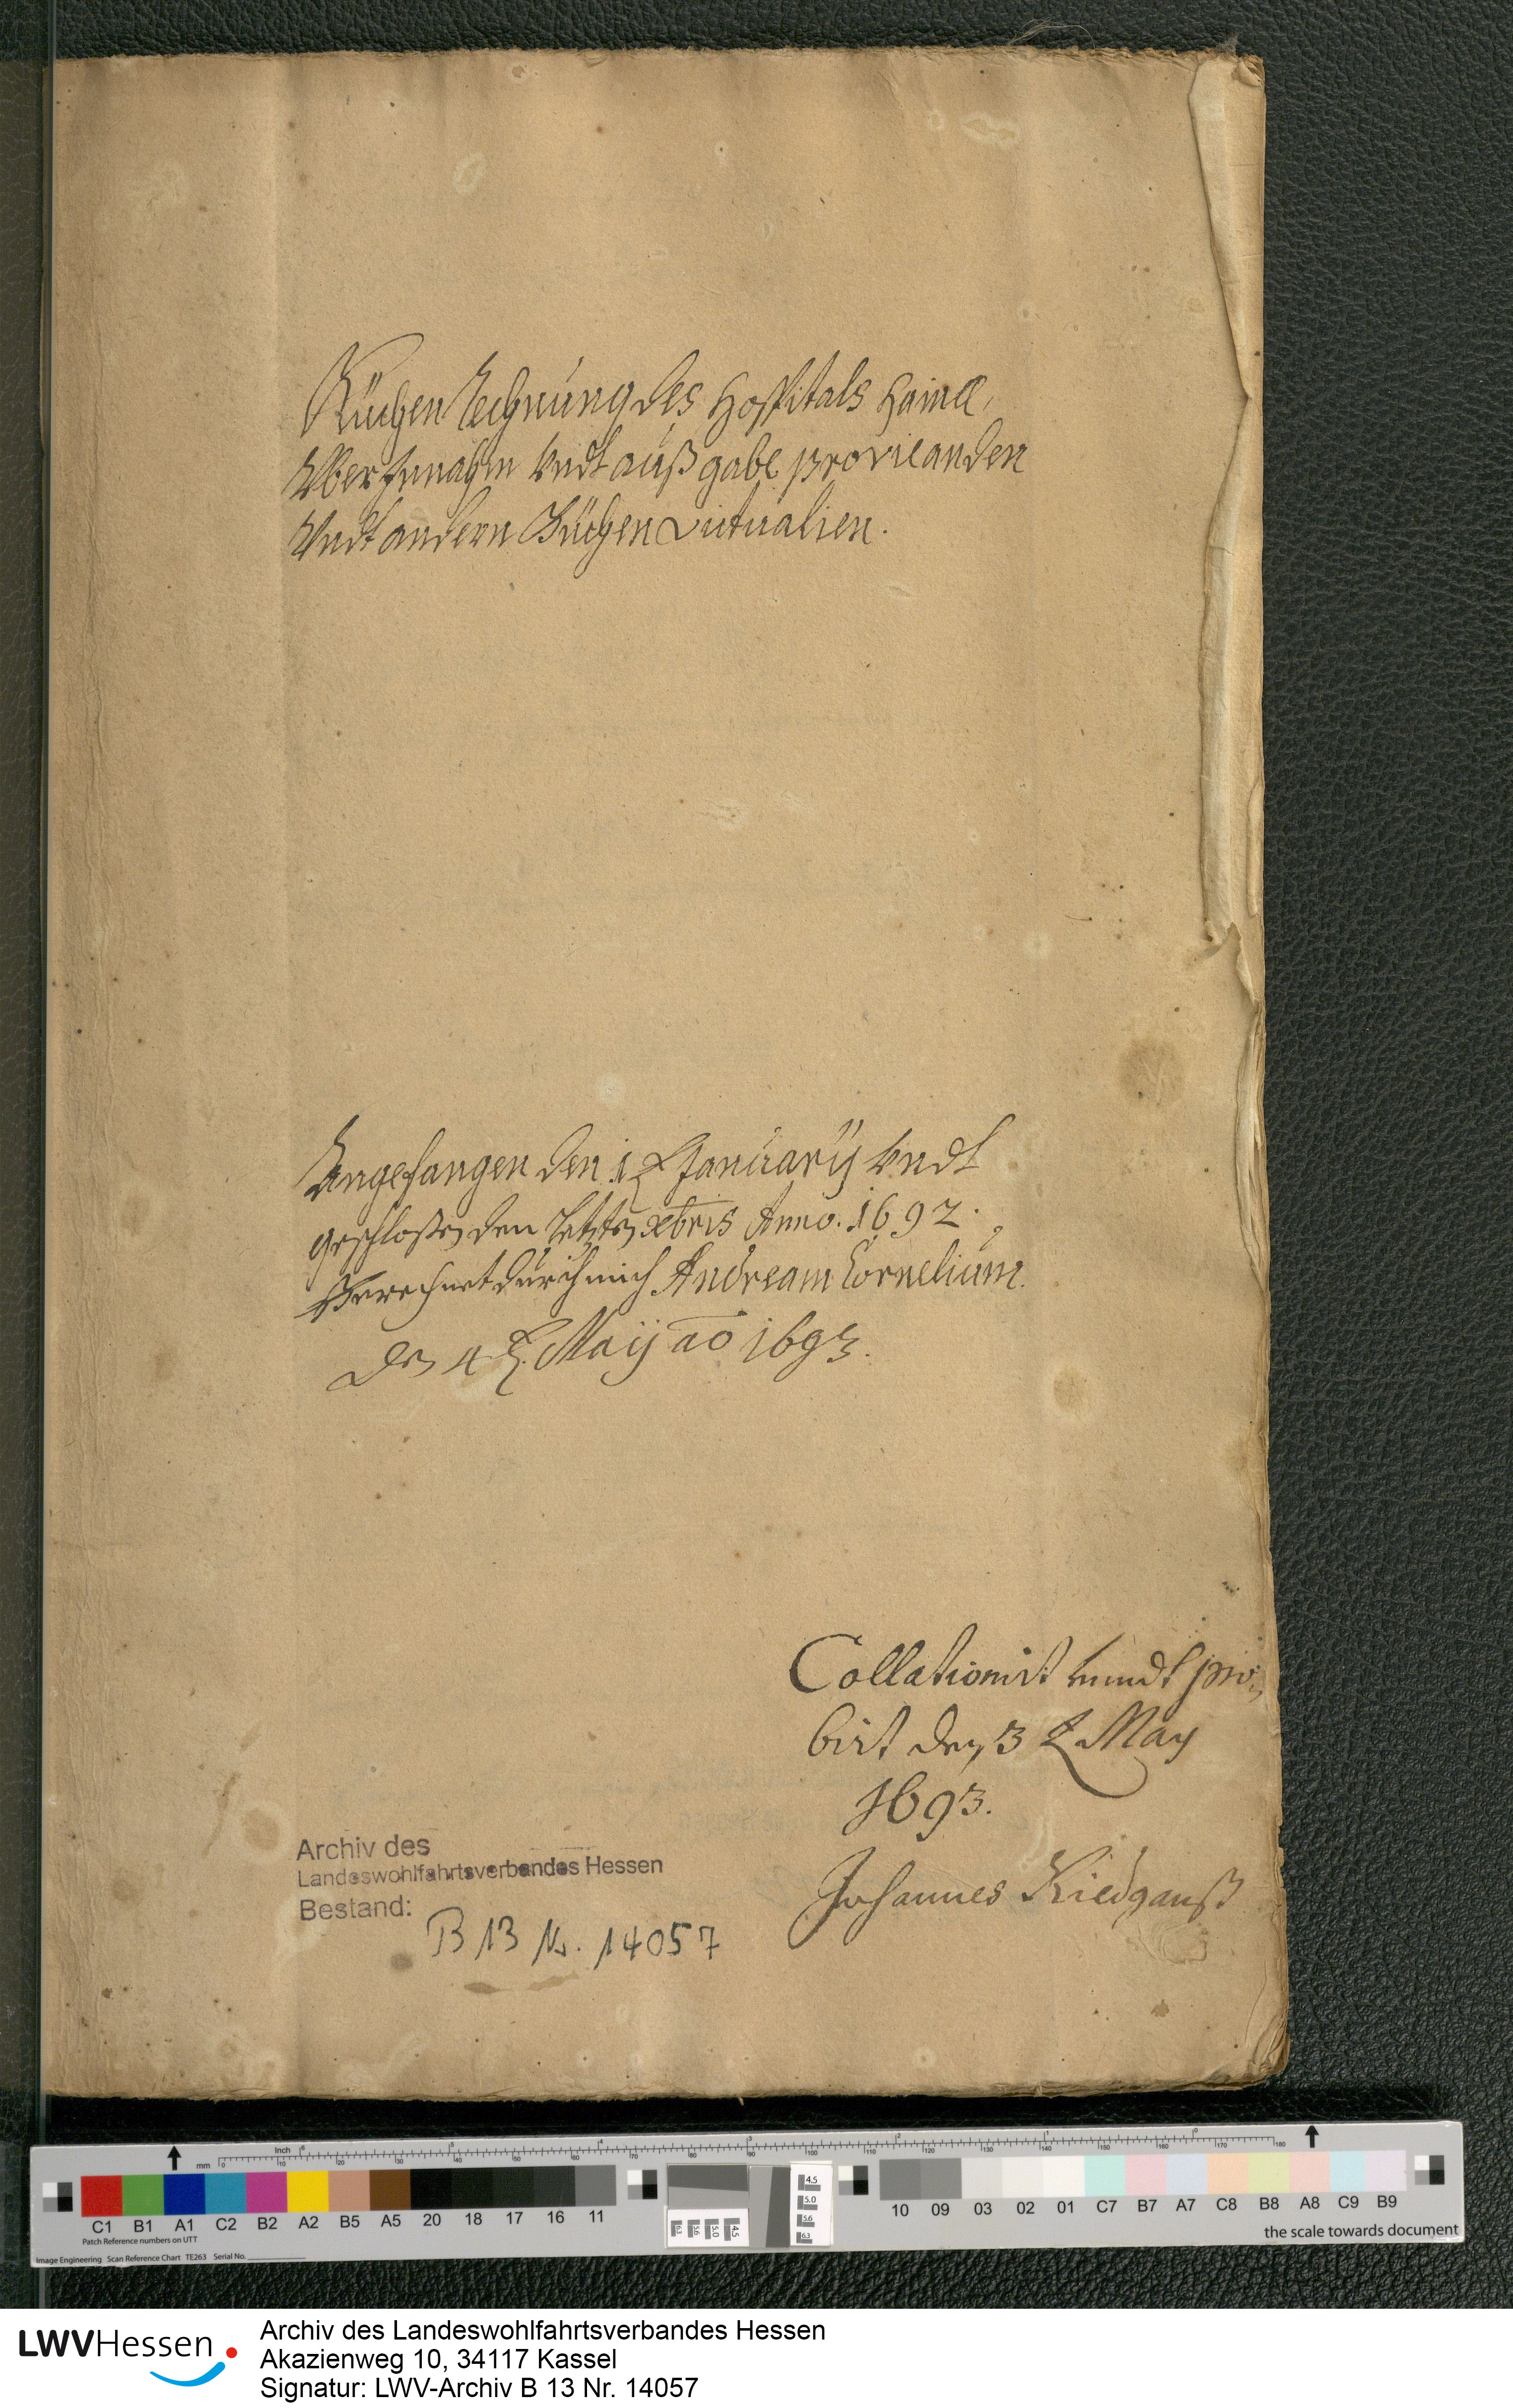 Küchen Rechnung des Hospitals Haina,
Vber Innahm Vndt außgabe provieanden
Vndt andern Küchen Victualien.
Angefangen den 1 January Vndt
geschloßen den letzten xbris Anno. 1692.
Berechnet durch mich Andream Cornelium.
Den 4 Maij ao 1693.
Collationirt vnndt pro:
birt den 3 May
1693.
Johannes
Archiv des
Landeswohlfahrtsverbandes Hessen
Bestand:
B 13 Nr. 14057
Inch
mm
C1 B1 A1 C2 B2 A2 B5 A5 20 18 17 16 11
10 09 03 02 01 C7 B7 A7 C8 B8 A8 C9 B9
Patch Reference numbers on UTT
the scale towards document
Image Engineering Scan Reference Chart TE263 Serial No.
LWVHessen
Archiv des Landeswohlfahrtsverbandes Hessen
Akazienweg 10, 34117 Kassel
Signatur: LWV-Archiv B 13 Nr. 14057